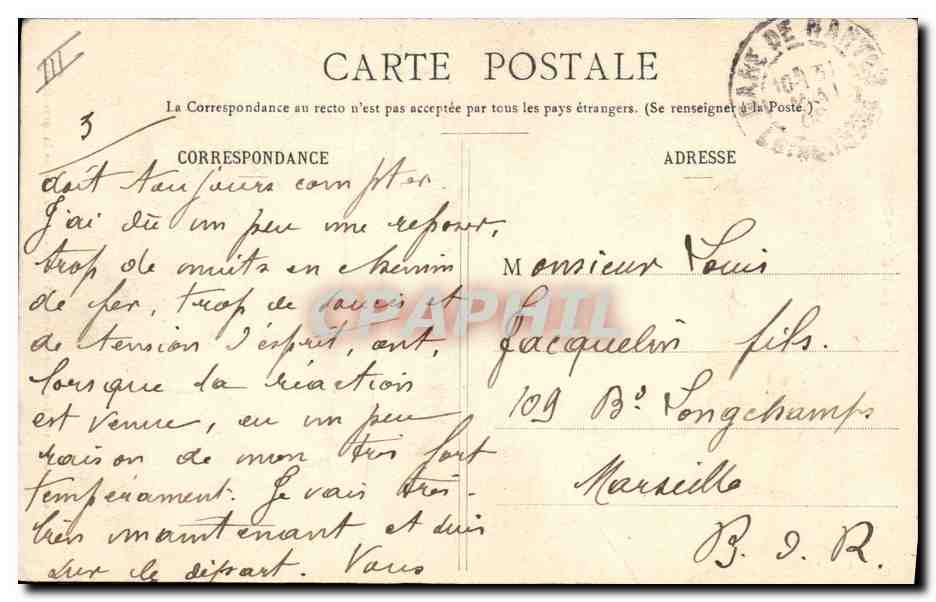 III
3
CARTE POSTALE
La Correspondance au recto n'est pas acceptée par tous les pays étrangers. (Se renseigner à la Poste.)
CORRESPONDANCE
doit toujours compter.
J'ai dû un peu me reposer,
trop de nuits en chemin
de fer, trop de soucis et
de tension d'esprit, ont,
lorsque la réaction
est venue, eu un peu
raison de mon très fort
tempérament. Je vais très-
bien maintenant et suis
sur le départ. Vous
ADRESSE
Monsieur Louis
Jacquelin fils.
109 Bd Longchamps
Marseille
B. d. R.
GARE DE NANTES
CPAPHIL